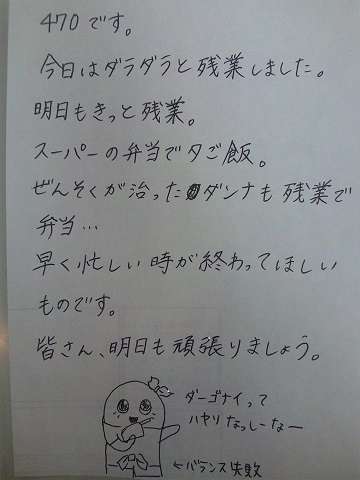 470です。
今日はダラダラと残業しました。
明日もきっと残業。
スーパーの弁当で夕ご飯。
ぜんそくが治ったダンナも残業で
弁当…
早く忙しい時が終わってほしい
ものです。
皆さん、明日も頑張りましょう。
ダーゴナイって
ハヤリなっしーなー
←バランス失敗